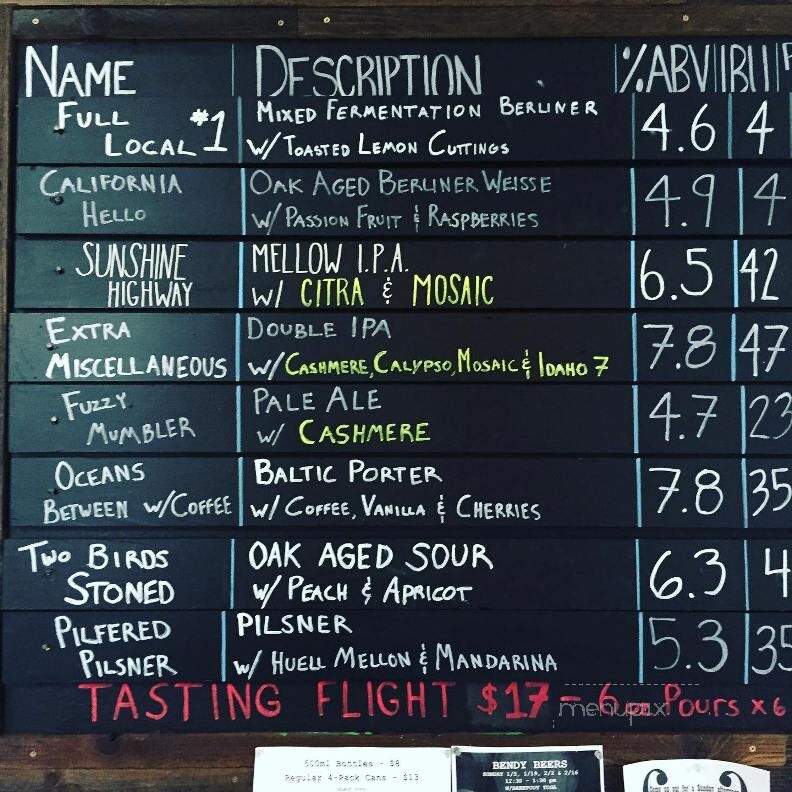 NAME DESCRIPTION %ABV IBU
FULL LOCAL #1
MIXED FERMENTATION BERLINER
W/ TOASTED LEMON CUTTINGS
4.6 4
CALIFORNIA HELLO
OAK AGED BERLINER WEISSE
W/ PASSION FRUIT & RASPBERRIES
4.9 4
SUNSHINE HIGHWAY
MELLOW I.P.A.
W/ CITRA & MOSAIC
6.5 42
EXTRA MISCELLANEOUS
DOUBLE IPA
W/ CASHMERE, CALYPSO, MOSAIC & IDAHO 7
7.8 47
FUZZY MUMBLER
PALE ALE
W/ CASHMERE
4.7 23
OCEANS BETWEEN W/COFFEE
BALTIC PORTER
W/ COFFEE, VANILLA & CHERRIES
7.8 35
TWO BIRDS STONED
OAK AGED SOUR
W/ PEACH & APRICOT
6.3 4
PILFERED PILSNER
PILSNER
W/ HUELL MELLON & MANDARINA
5.3 35
TASTING FLIGHT $17 - 6oz POURS x 6
menupix
500ml Bottles - $8
Regular 4-Pack Cans - $13
BENDY BEERS
SUNDAY 1/5, 1/19, 2/2 & 2/16
12:30 - 1:30 pm
W/BAREFOOT YOGA
Come on out for a Sunday afternoon